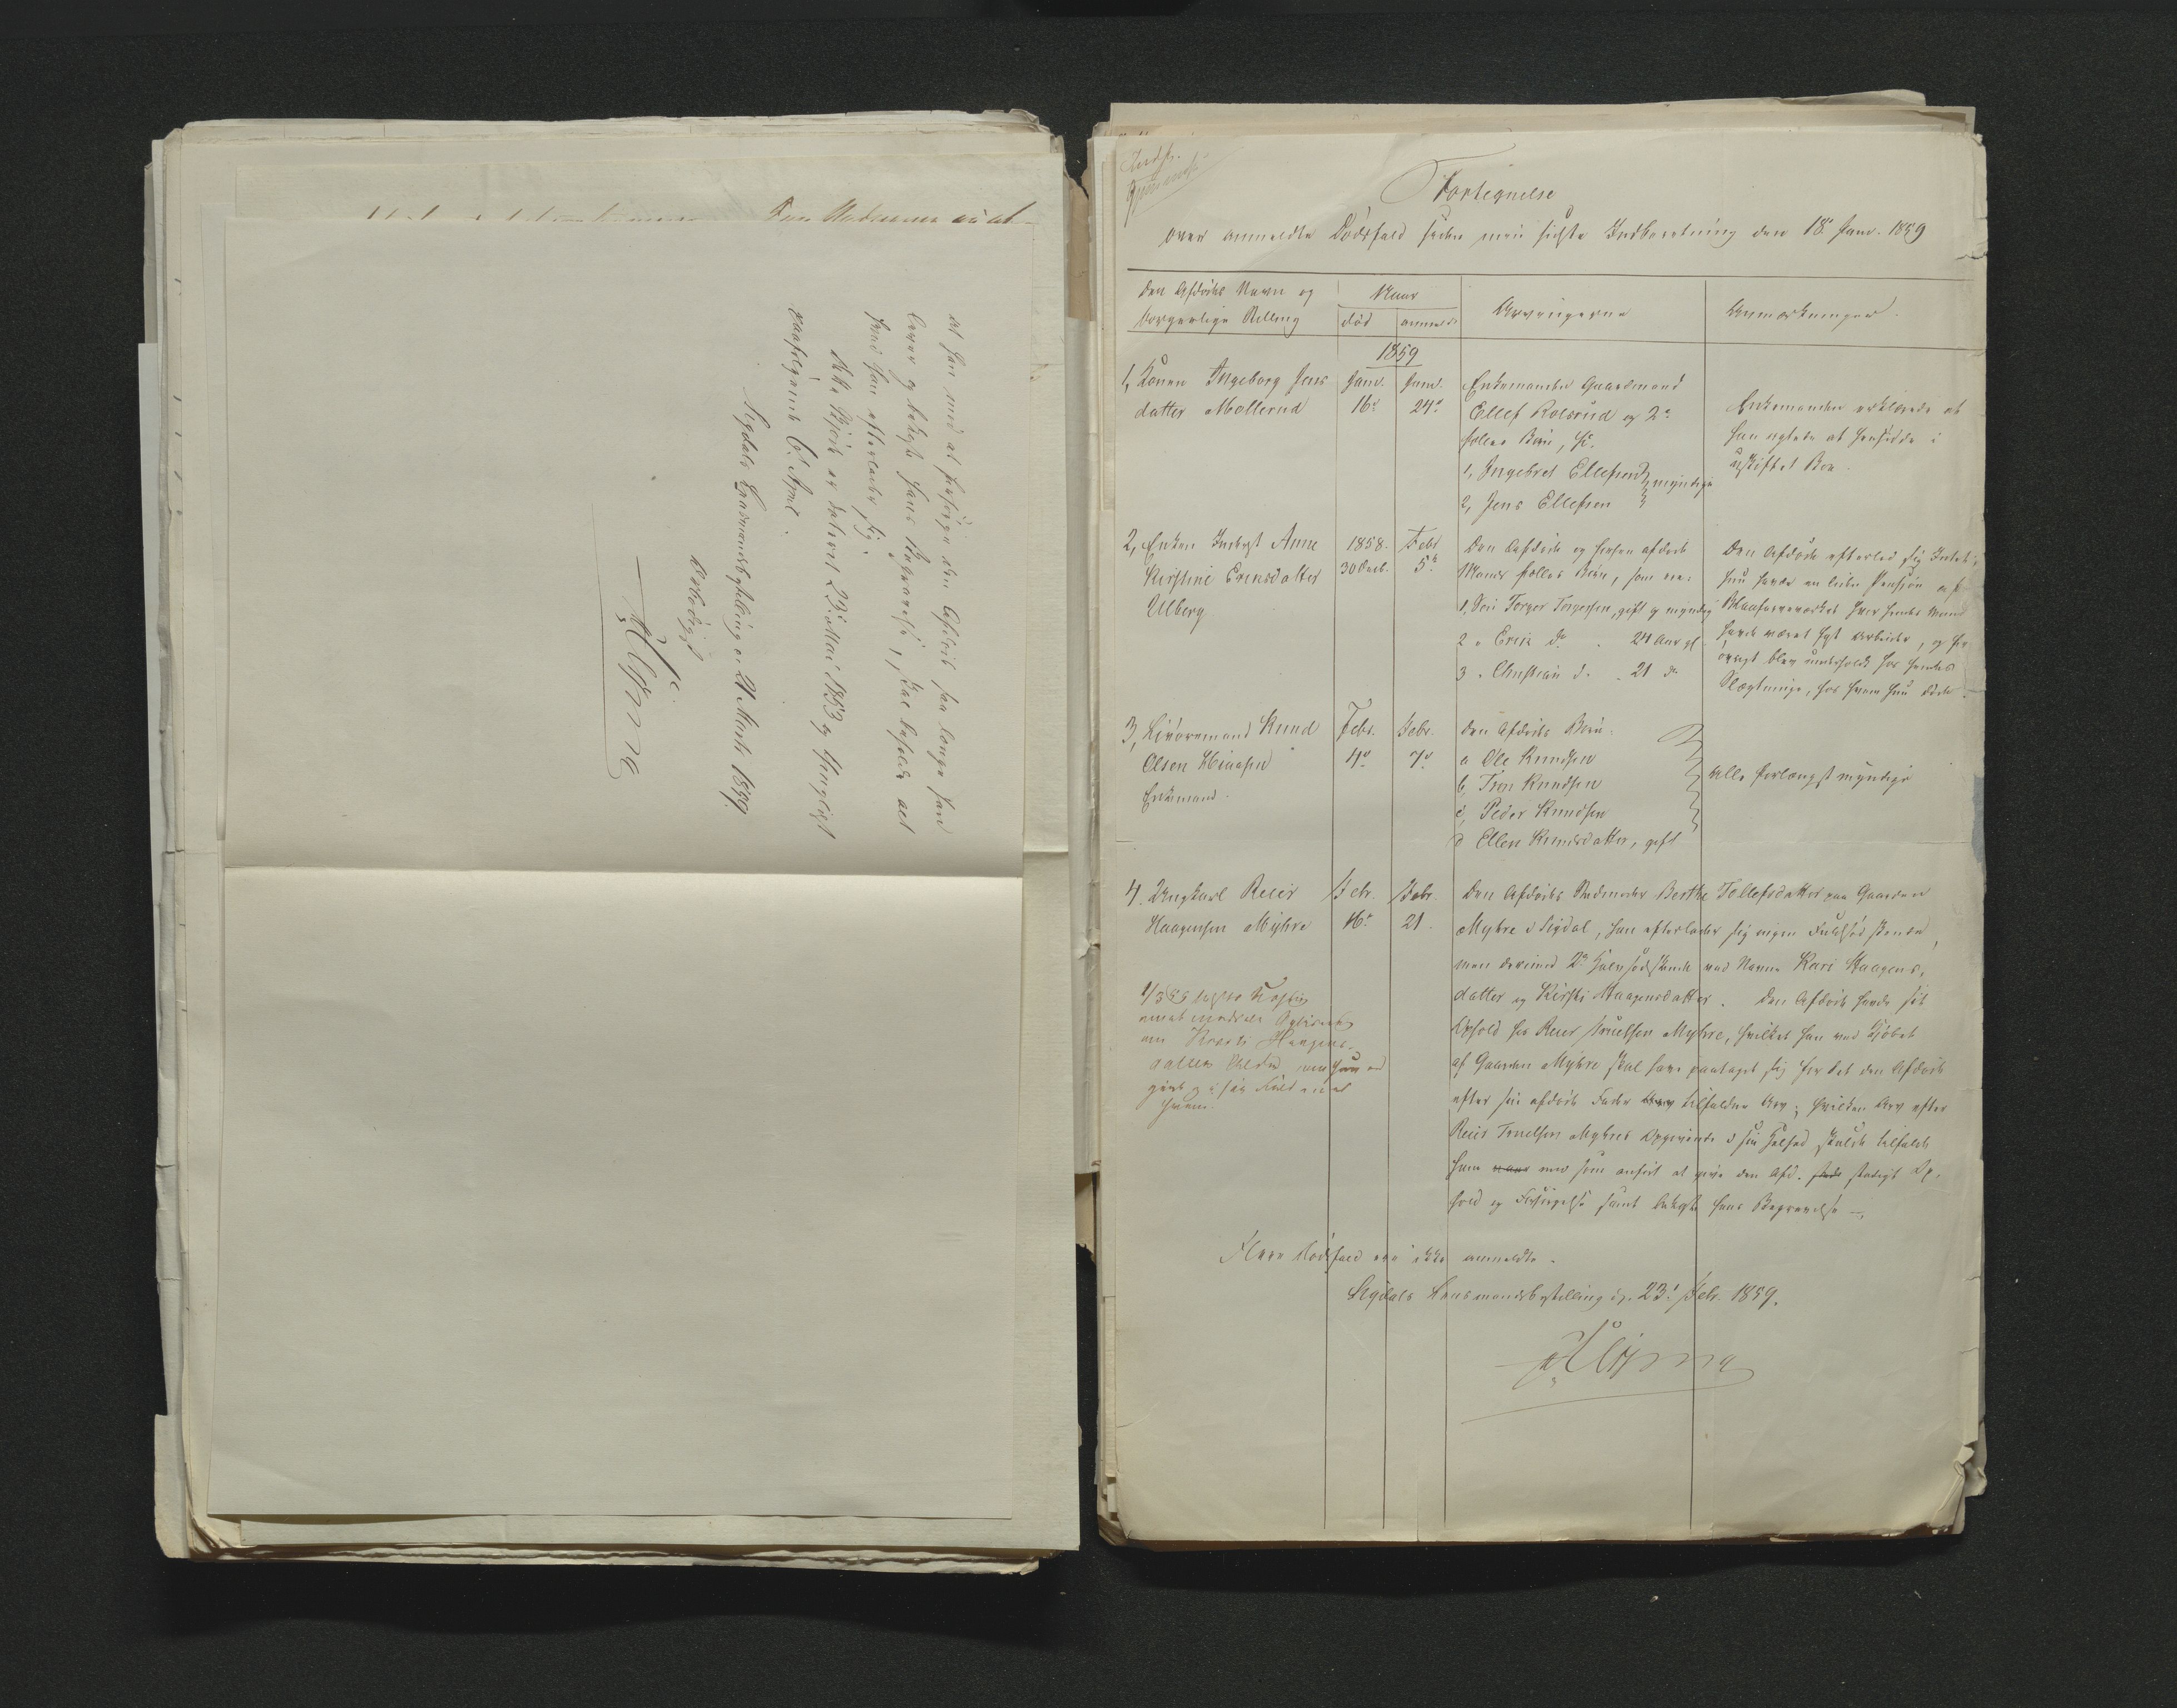 at han med at forsørge den Afdøde saa længe han
lever og bekoste hans Begravelse, skal beholde alt
hvad han efterlader sig.
Dette Skjøde er dateret 23de Mai 1853 og thinglyst
paafølgende 6te April.
Sigdals Lensmandsbestilling d. 21 Marts 1859.
Ærbødigst
Fortegnelse
over anmeldte Dødsfald siden min sidste Indberetning den 18de Janr. 1859
Den Afdødes Navn og
borgerlige Stilling
Naar
død
anmeldt
Arvingerne
Anmærkninger.
1859
1, Konen Ingeborg Jens
datter Møllerud
Janr. 16de
Janr. 24de
Enkemanden Gaardmand
Ellef Kolsrud og 2de
fælles Børn,
1, Ingebret Ellefsen
2, Jens Ellefsen
myndige
Enkemanden erklærede at
han agtede at hensidde i
uskiftet Bo.
2, Enken Inderst Anne
Kirstine Evensdatter
Ulberg
1858. 30 Decb.
Febr. 5te
Den Afdøde og hendes afdøde
Mands fælles Børn, som ere:
1, Søn Torger Torgersen, gift og myndig
2 " Erik do. 24 Aar gl.
3 " Christian do. 21 do.
Den Afdøde efterlod sig Intet;
hun havde en liden Pension af
Blaafarveværket hvor hendes Mand
havde været fast Arbeider, og for
øvrigt blev underholdt hos hendes
Slægtninge, hos hvem hun døde.
3, Livøremand Knud
Olsen
Enkemand.
Febr. 4de
Febr. 7de
Den Afdødes Børn:
a Ole Knudsen
b, Tron Knudsen
c, Peder Knudsen
d Ellen Knudsdatter, gift
Alle forlængst myndige
4. Ungkarl Reier
Haagensen Myhre
Febr. 16de
Febr. 21.
Den Afdødes Stedmoder Berthe Tollefsdatter paa Gaarden
Myhre i Sigdal, han efterlader sig ingen Fuldsødskende,
men derimod 2de Halvsødskende ved Navn Kari Haagens-
datter og Kirsti Haagensdatter. Den Afdøde havde sit
Ophold hos Reier Truelsen Myhre, hvilket han ved Kjøbet
af Gaarden Myhre skal have paataget sig for det den Afdøde
efter sin afdøde Fader tilfaldne Arv; hvilken Arv efter
Reier Truelsen Myhres Opgivende i sin Helhed skulde tilfalde
ham mod som anført at give den Afd. stadigt Op-
hold og Forsørgelse samt bekoste hans Begravelse –
Flere Dødsfald ere ikke anmeldte.
Sigdals Lensmandsbestilling d. 23de Febr. 1859.